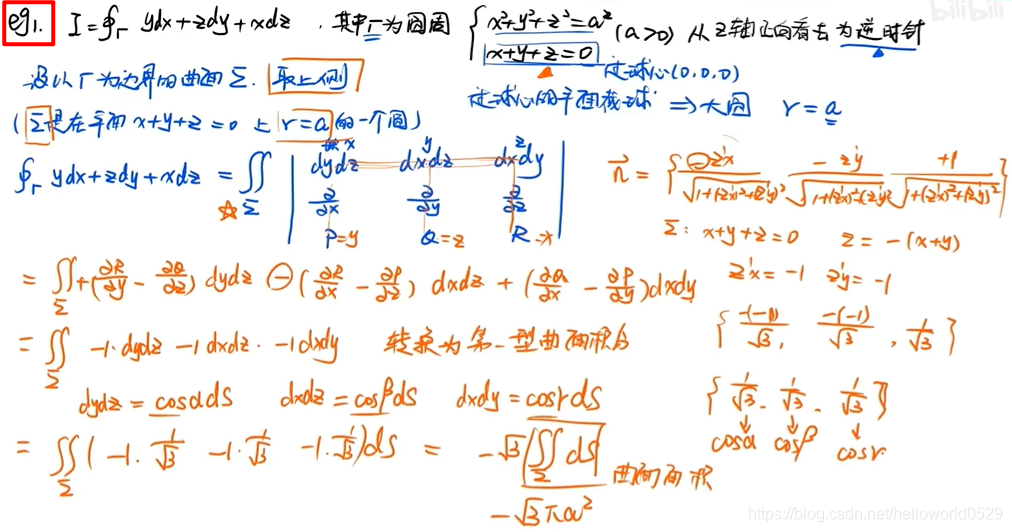 eg1. I=∮Γ ydx+zdy+xdz . 其中Γ为圆周 { x²+y²+z²=a² x+y+z=0 (a>0) 从z轴正向看去为逆时针
bilibili
设以Γ为边界的曲面Σ. 取上侧 过球心(0,0,0)
过球心的平面截球 ⇒ 大圆 r=a
(Σ是在平面 x+y+z=0 上 r=a 的一个圆)
∮Γ ydx+zdy+xdz = ∬Σ | dydz dxdz dxdy ∂/∂x ∂/∂y ∂/∂z P=y Q=z R=x |
x y z
n⃗ = { -z'x/√(1+(z'x)²+(z'y)²) -z'y/√(1+(z'x)²+(z'y)²) +1/√(1+(z'x)²+(z'y)²) }
Σ: x+y+z=0 z=-(x+y)
= ∬Σ +(∂R/∂y - ∂Q/∂z) dydz - (∂R/∂x - ∂P/∂z) dxdz + (∂Q/∂x - ∂P/∂y)dxdy
z'x=-1 z'y=-1
= ∬Σ -1·dydz -1dxdz · -1dxdy 转换为第一型曲面积分
{ -(-1)/√3, -(-1)/√3, 1/√3 }
dydz = cosαdS dxdz = cosβdS dxdy = cosγdS
{ 1/√3 . 1/√3 . 1/√3 }
cosα cosβ cosγ
= ∬Σ (-1·1/√3 -1·1/√3 -1·1/√3)dS = -√3 ∬Σ dS 曲面面积
-√3πa²
https://blog.csdn.net/helloworld0529